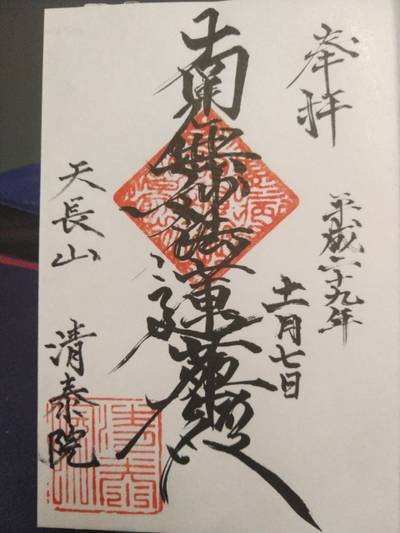 奉拝
平成二十九年
十一月七日
南無妙法蓮華経
天長山
清泰院